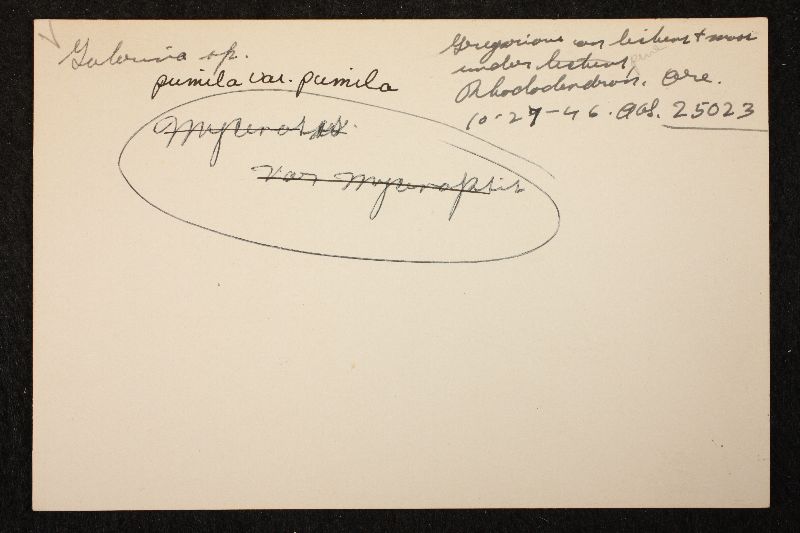 Galerina sp.
pumila var. pumila
var
Gregarious on lichens + moss
under lichens pine
Rhododendron. Ore.
10-27-46. AHS. 25023